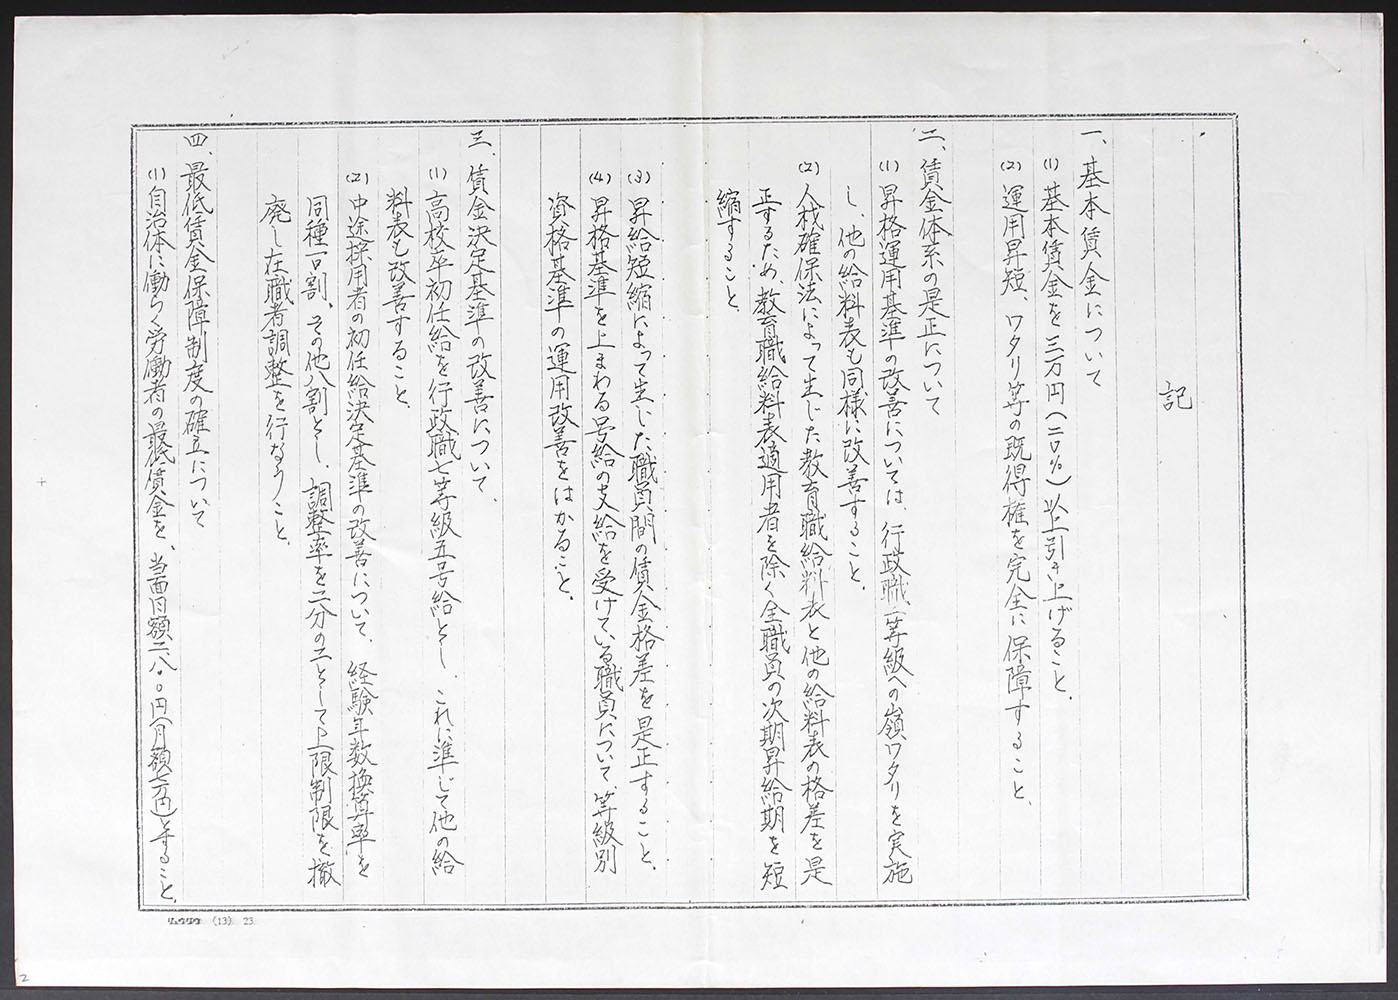 記
一、基本賃金について
(1) 基本賃金を三万円(二〇%)以上引き上げること、
(2) 運用昇短、ワタリ等の既得権を完全に保障すること、
二、賃金体系の是正について
(1) 昇格運用基準の改善については、行政職、一等級への嶺ワタリを実施
し、他の給料表も同様に改善すること、
(2) 人材確保法によって生じた教育職給料表と他の給料表の格差を是
正するため、教育職給料表適用者を除く全職員の次期昇給期を短
縮すること、
(3) 昇給短縮によって生じた職員間の賃金格差を是正すること、
(4) 昇格基準を上まわる号給の支給を受けている職員について、等級別
資格基準の運用改善をはかること、
三、賃金決定基準の改善について、
(1) 高校卒初任給を行政職七等級五号給とし、これに準じて他の給
料表も改善すること、
(2) 中途採用者の初任給決定基準の改善について、経験年数換算率を
同種一〇割、その他八割とし、調整率を二分の二として上限制限を撤
廃し在職者調整を行なうこと、
四、最低賃金保障制度の確立について
(1) 自治体に働らく労働者の最低賃金を、当面日額二八〇〇円(月額七万円)とすること、
リュウタウ (13) 23
2